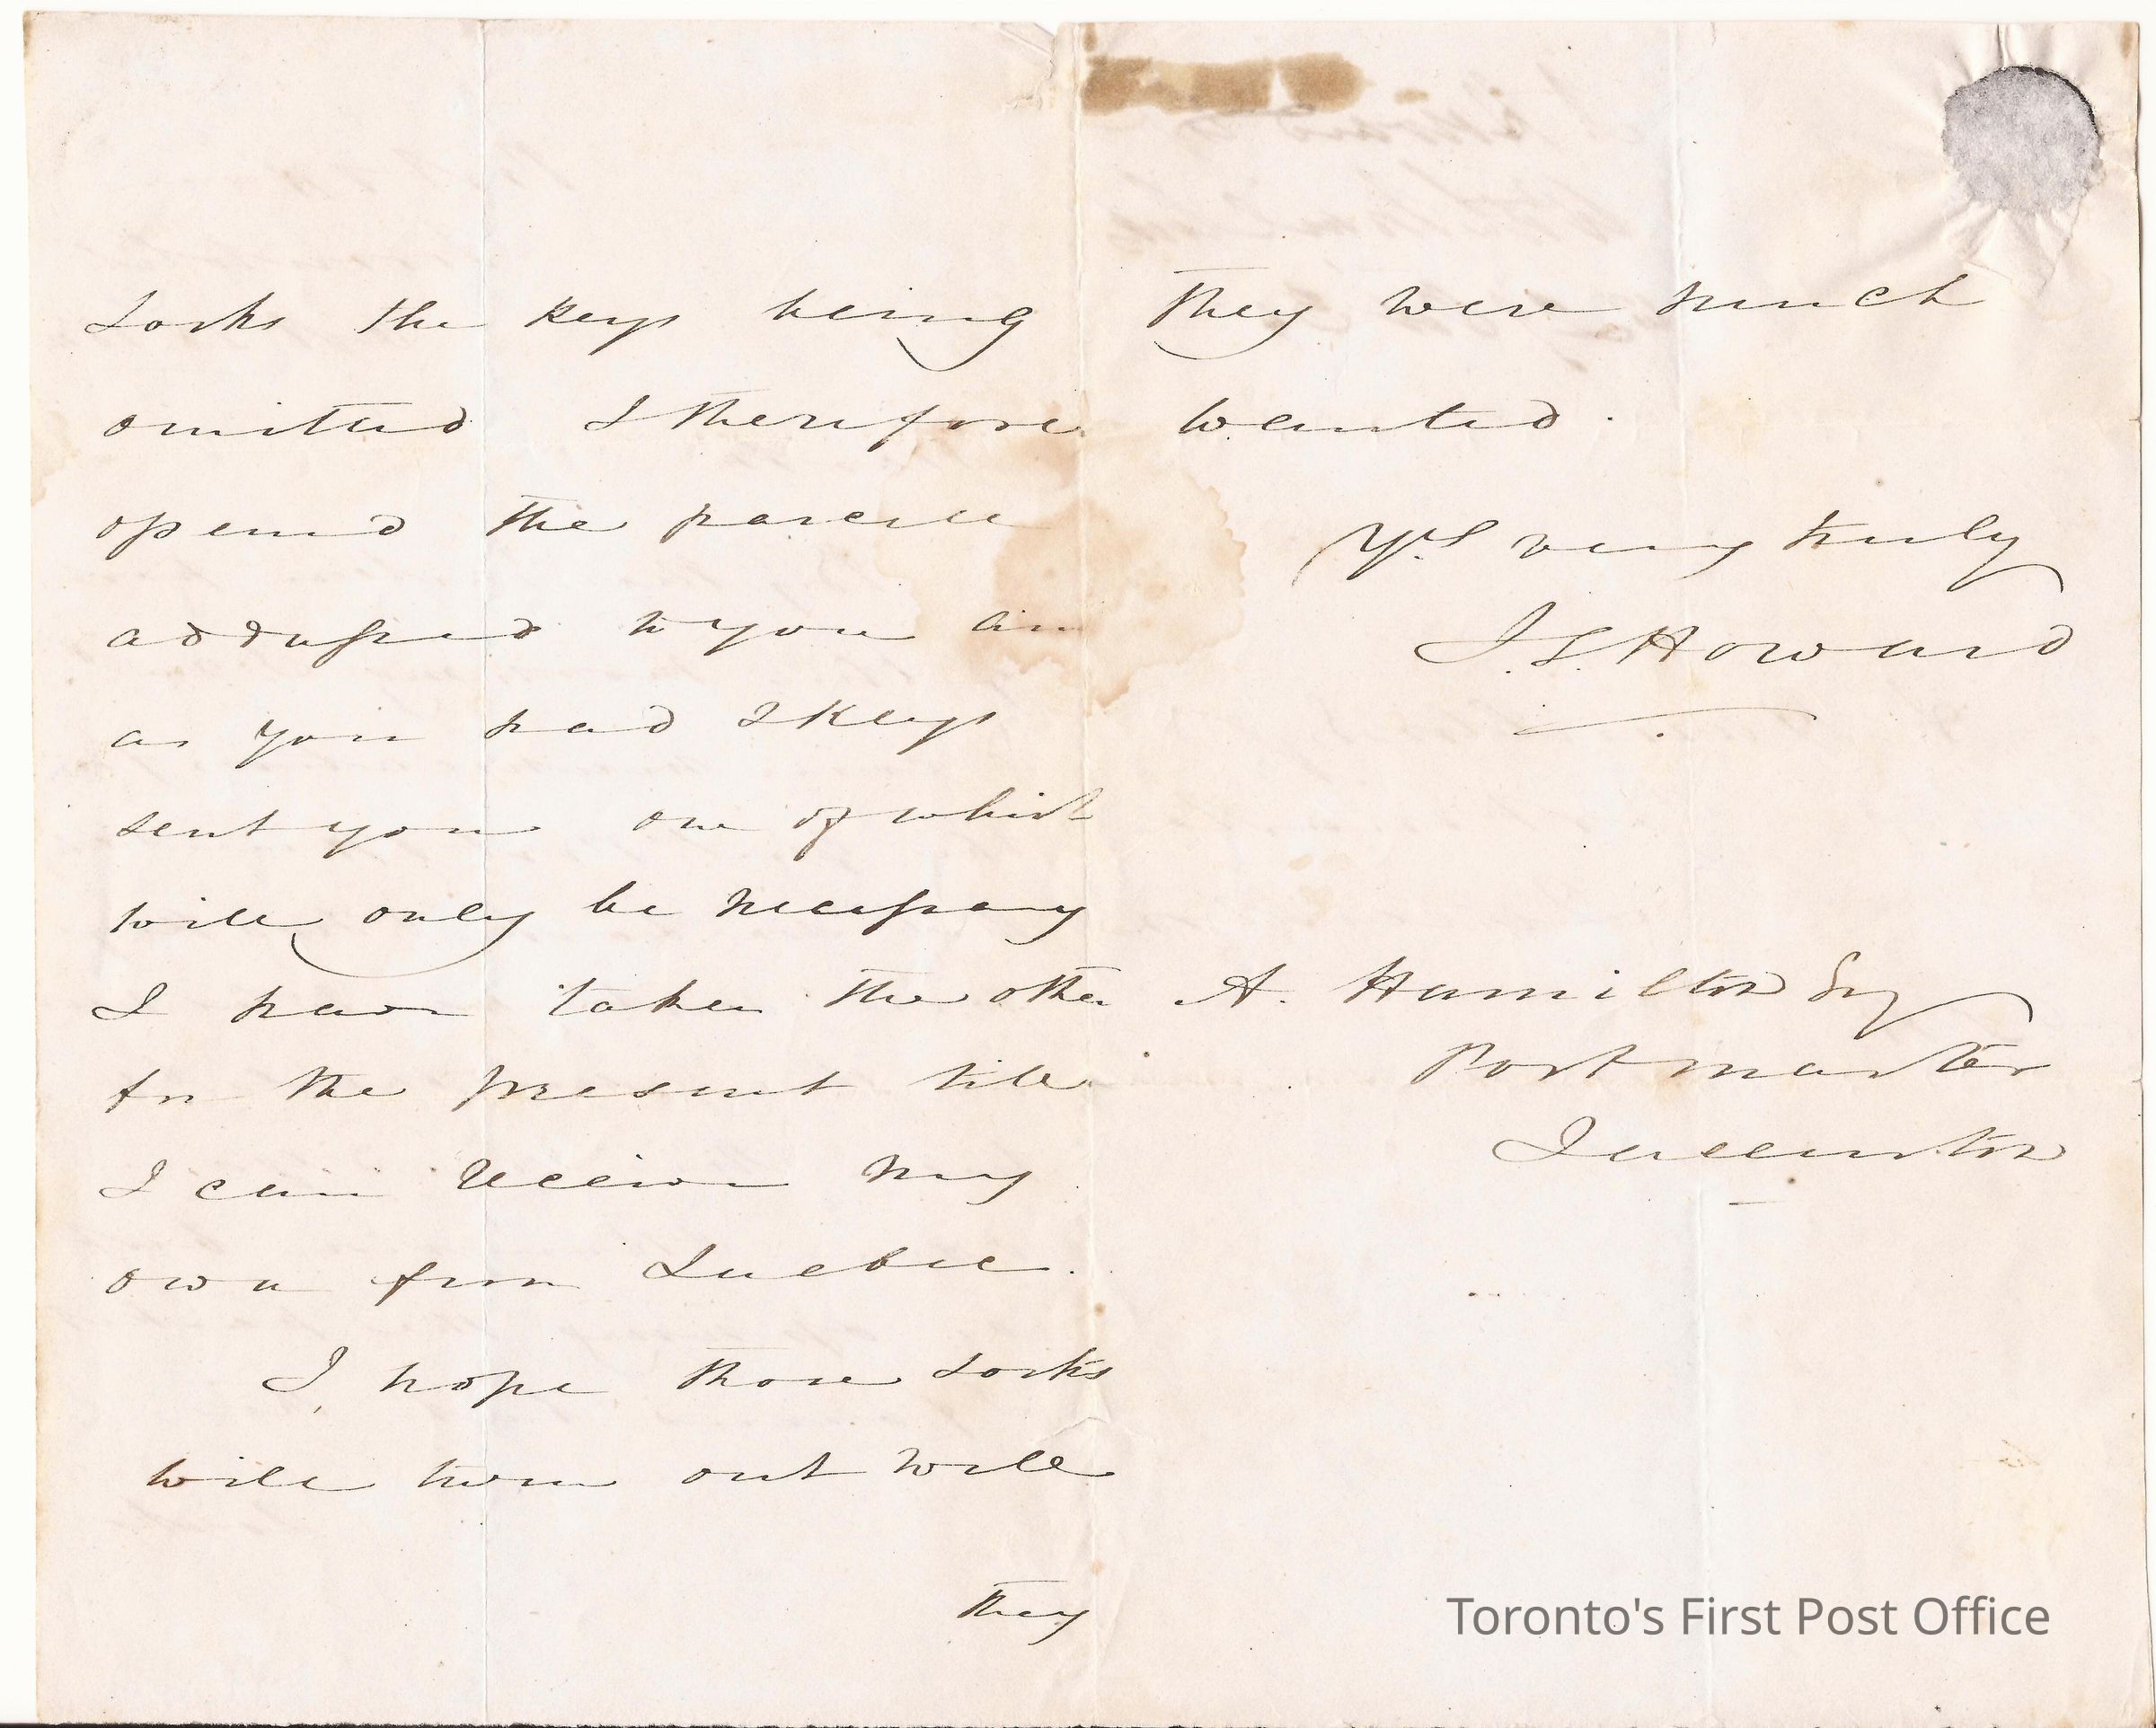 Locks the keys being
omitted I therefore
opened the parcell
addressed to you an
as you had 2 keys
sent you one of which
will only be necessary
I have taken the other
for the present till
I can receive my
own from Quebec.
I hope those Locks
will turn out well
they
They were much
wanted.
Yrs very truly
J. S. Howard
A. Hamilton Esq
Postmaster
Queenston
Toronto's First Post Office